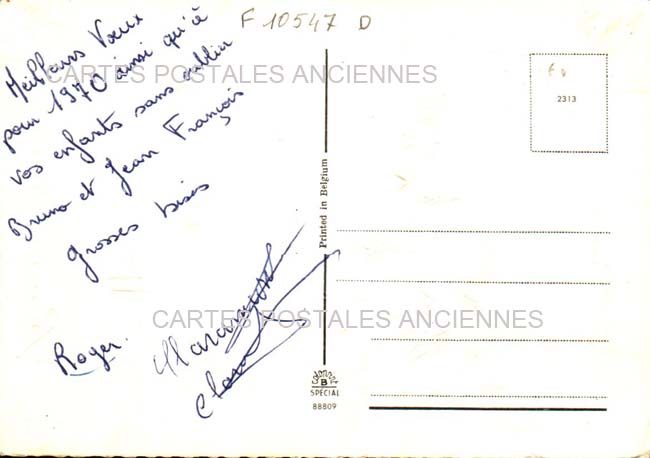 F 10547 D
Meilleurs Vœux
pour 1970 ainsi qu'à
vos enfants sans oublier
Bruno et Jean François
grosses bises
Roger.
CARTES POSTALES ANCIENNES
CARTES POSTALES ANCIENNES
Printed in Belgium
2313
B
SPECIAL
88809